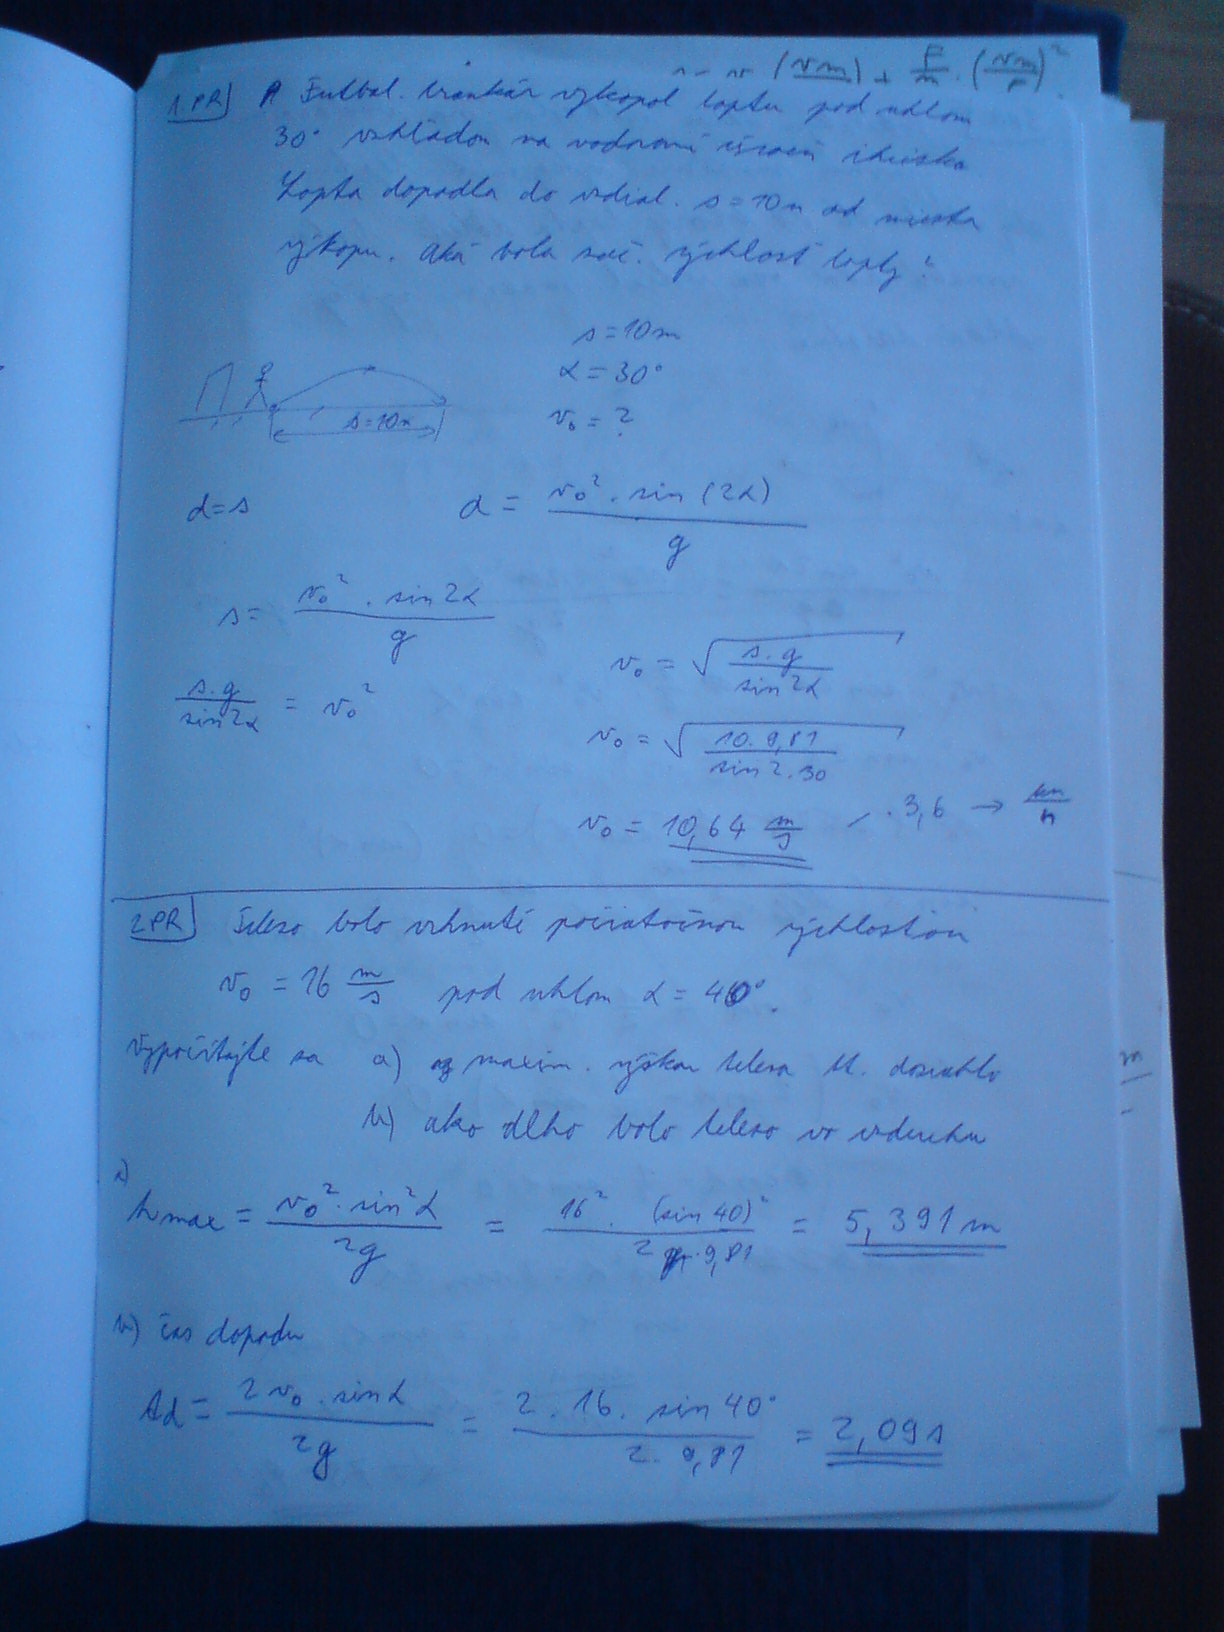 1.PR) Futbal. brankár vykopol loptu pod uhlom
30° vzhľadom na vodorovnú ihriska
Lopta dopadla do vzdial. s = 10m od miesta
výkopu. Aká bola zač. rýchlosť lopty?
s = 10m
α = 30°
v₀ = ?
s = 10m
d = s
d = v₀² . sin (2α) / g
s = v₀² . sin 2α / g
s.g / sin 2α = v₀²
v₀ = √(s.g / sin 2α)
v₀ = √(10. 9,81 / sin 2.30)
v₀ = 10,64 m/s / . 3,6 → km/h
2PR) Teleso bolo vrhnuté počiatočnou rýchlosťou
v₀ = 16 m/s pod uhlom α = 40°.
Vypočítajte sa a) maxim. výšku telesa kt. dosiahlo
b) ako dlho bolo teleso vo vzduchu
a)
hmax = v₀² . sin²α / 2g = 16² . (sin 40)² / 2 . 9,81 = 5,391 m
b) čas dopadu
td = 2 v₀ . sin α / 2g = 2 . 16 . sin 40° / 2 . 9,81 = 2,09 s